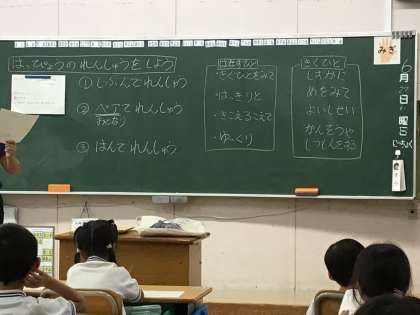 はっぴょうのれんしゅうをしよう
① じぶんでれんしゅう
② ペアでれんしゅう
おとなり
③ はんでれんしゅう
はなすひと
・きくひとをみて
・はっきりと
・きこえるこえで
・ゆっくり
きくひと
しずかに
めをみて
よいしせい
かんそうや
しつもんをする
みぎ
6月
日
曜日